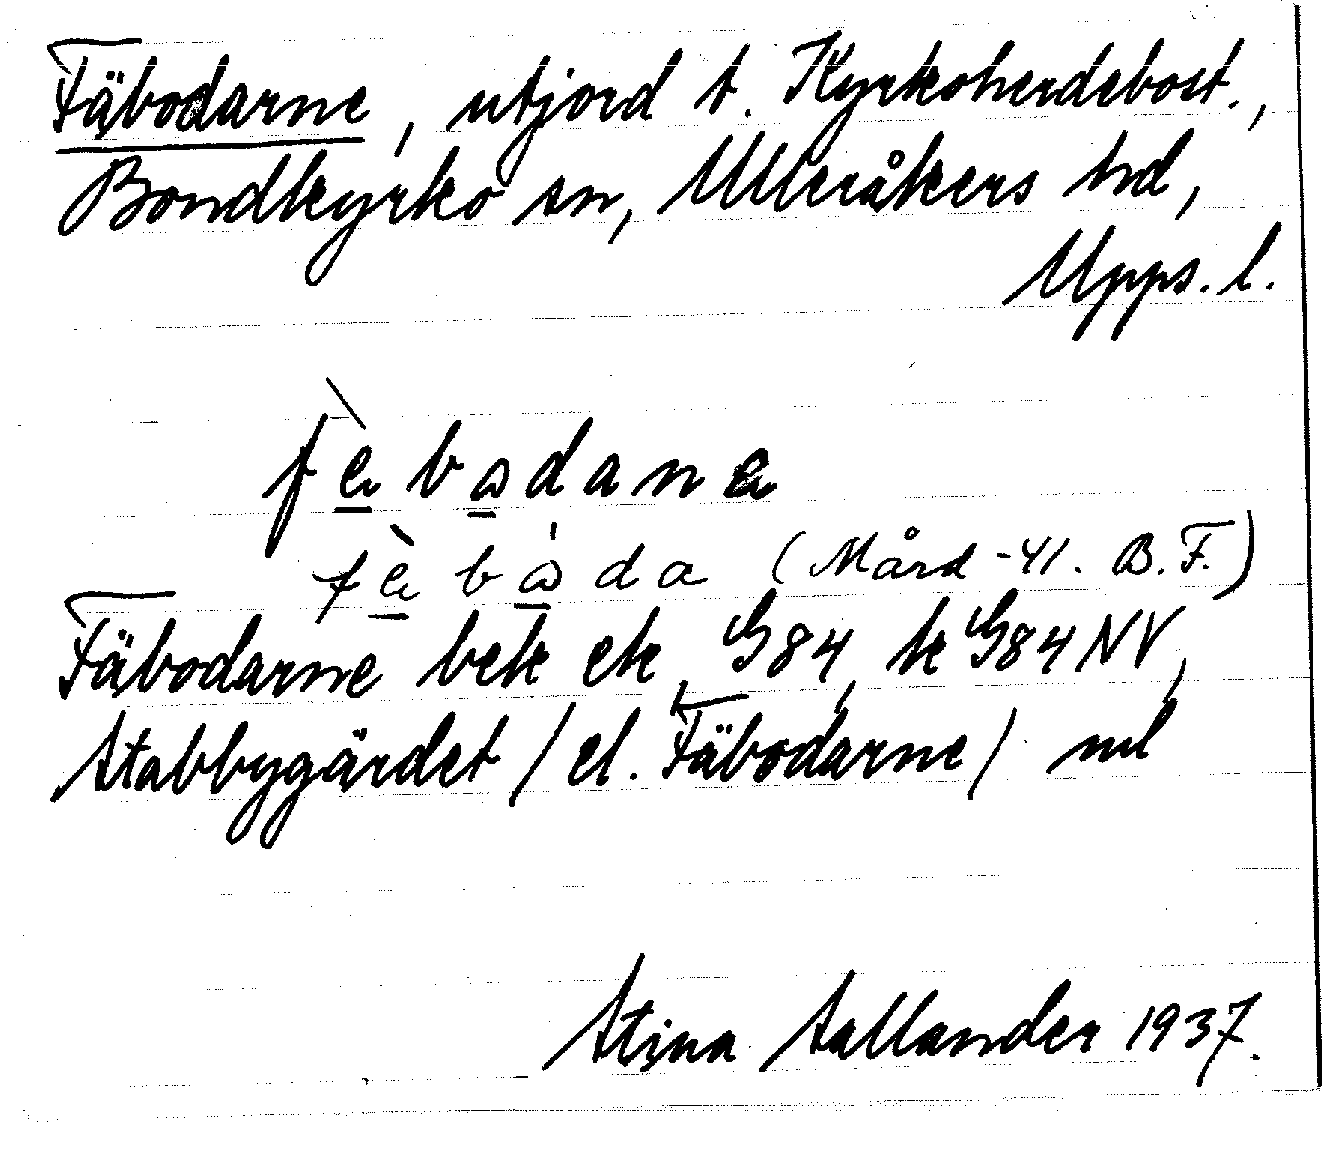 Fäbodarne, utjord t. Kyrkoherdebost.,
Bondkyrko sn, Ulleråkers hd,
Upps. l.
fæ̀bωdanæ
fæ̀bω̍da (Mård -41. B.F.)
Fäbodarne bek ek G84, k G84 NV,
Stabbygärdet / el. Fäbodarne / ml
Stina Sallander 1937.